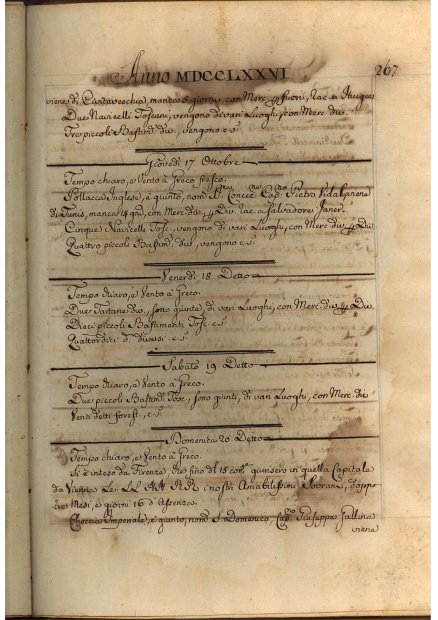 Anno MDCCLXXVI
267
viene di Civitavecchia, manca 5 giorni, con Merc. p. fuori, Rac. a
Due Navicelli Toscani, vengono di vari Luoghi, con Merc. div.
Tre piccoli Bastim. div., vengono c. s.
Giovedì 17 Ottobre
Tempo chiaro, e Vento à Greco fresco.
Pollacca Inglese, è giunta, nom. Concez. Cap. Pietro Vidal, viene
di Tunis, manca gni, con Merc. div. p. Div. Rac. a Salvadore Janer.
Cinque Navicelli Tosc. vengono di vari Luoghi, con Merc. div. p. Div.
Quattro piccoli Bastim. div. vengono c. s.
Venerdì 18 Detto
Tempo chiaro, e Vento à Greco.
Due Tartane div., sono giunte, di vari Luoghi, con Merc. div. p. Div.
Dieci piccoli Bastimenti Tosc. c. s.
Quattordici d. diversi c. s.
Sabato 19 Detto
Tempo chiaro, e Vento à Greco.
Due piccoli Bastim. Tosc., sono giunti, di vari Luoghi, con Merc. div.
Venti detti forest., c. s.
Domenica 20 Detto
Tempo chiaro, e Vento à Greco.
Si è inteso da Firenze che fino dl 15 corr. giunsero in quella Capitale
da Vienna Le LL. AA. RR. i nostri Amabilissimi Sovrani, doppo
tre Mesi, e giorni 16 d'Assenza.
Checcia Imperiale, è giunta, nom. S. Domenico, Cap. Giuseppe Gallina
viene